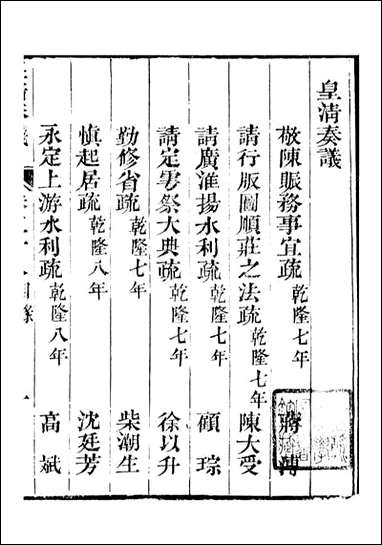 皇清奏議
敬陳賑務事宜疏 乾隆七年 蔣溥
請行版圖順莊之法疏 乾隆七年 陳大受
請廣淮揚水利疏 乾隆七年 顧琮
請定雩祭大典疏 乾隆七年 徐以升
勤修省疏 乾隆七年 柴潮生
慎起居疏 乾隆八年 沈廷芳
永定上游水利疏 乾隆八年 高斌